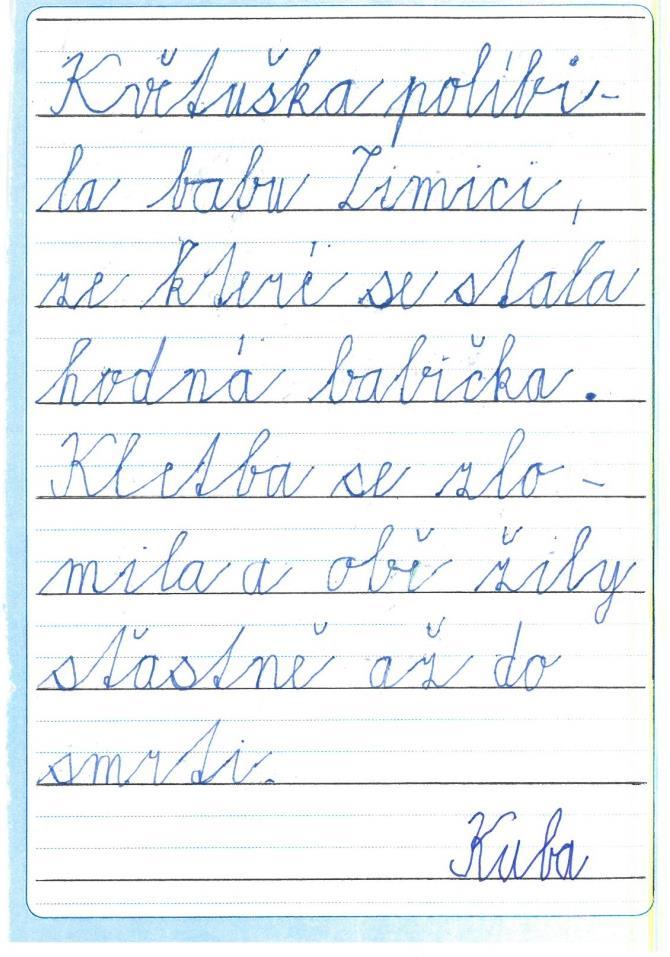 Květuška políbi-
la babu Zimici,
ze které se stala
hodná babička.
Kletba se zlo-
mila a obě žily
šťastně až do
smrti.
Kuba